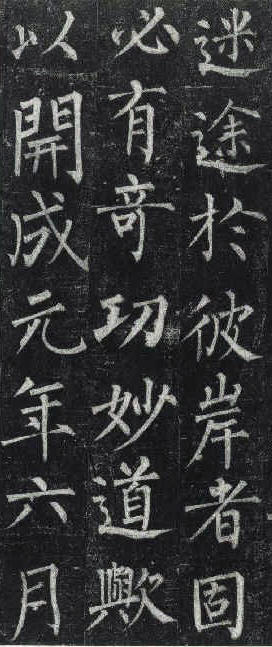 迷途於彼岸者固
必有奇功妙道歟
以開成元年六月